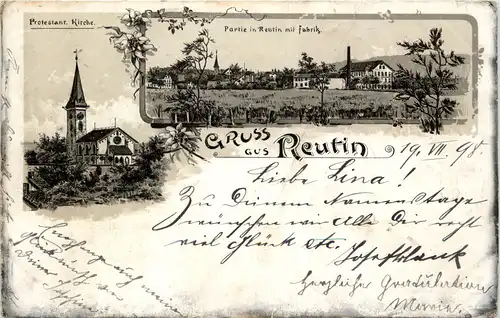 Protestant. Kirche.
Partie in Reutin mit Fabrik.
GRUSS
aus Reutin
19. VII. 98.
Liebe Lina!
Zu Deinem Namenstage
wünschen wir Alle Dir recht
viel Glück etc.
Josef Blank
Herzliche Gradulation
Marie.